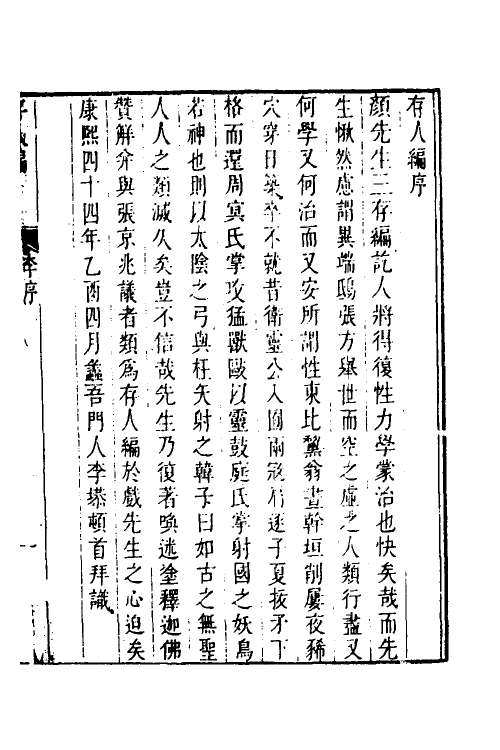 存人編序
顏先生三存編訖人將得復性力學蒙治也快矣哉而先
生愀然慮謂異端鴟張方舉世而空之虛之人類行盡又
何學又何治而又安所謂性東比黨翁晝幹垣削屢夜豨
穴穿日築卒不就昔衛靈公入囿兩寇相逐子夏拔矛下
格而還周冥氏掌攻猛獸敺以靈鼓庭氏掌射國之妖鳥
若神也則以太陰之弓與枉矢射之韓子曰如古之無聖
人人之類滅久矣豈不信哉先生乃復著喚迷塗釋迦佛
贊解并與張京兆議者類為存人編於戲先生之心迫矣
康熙四十四年乙酉四月蠡吾門人李塨頓首拜識
李序